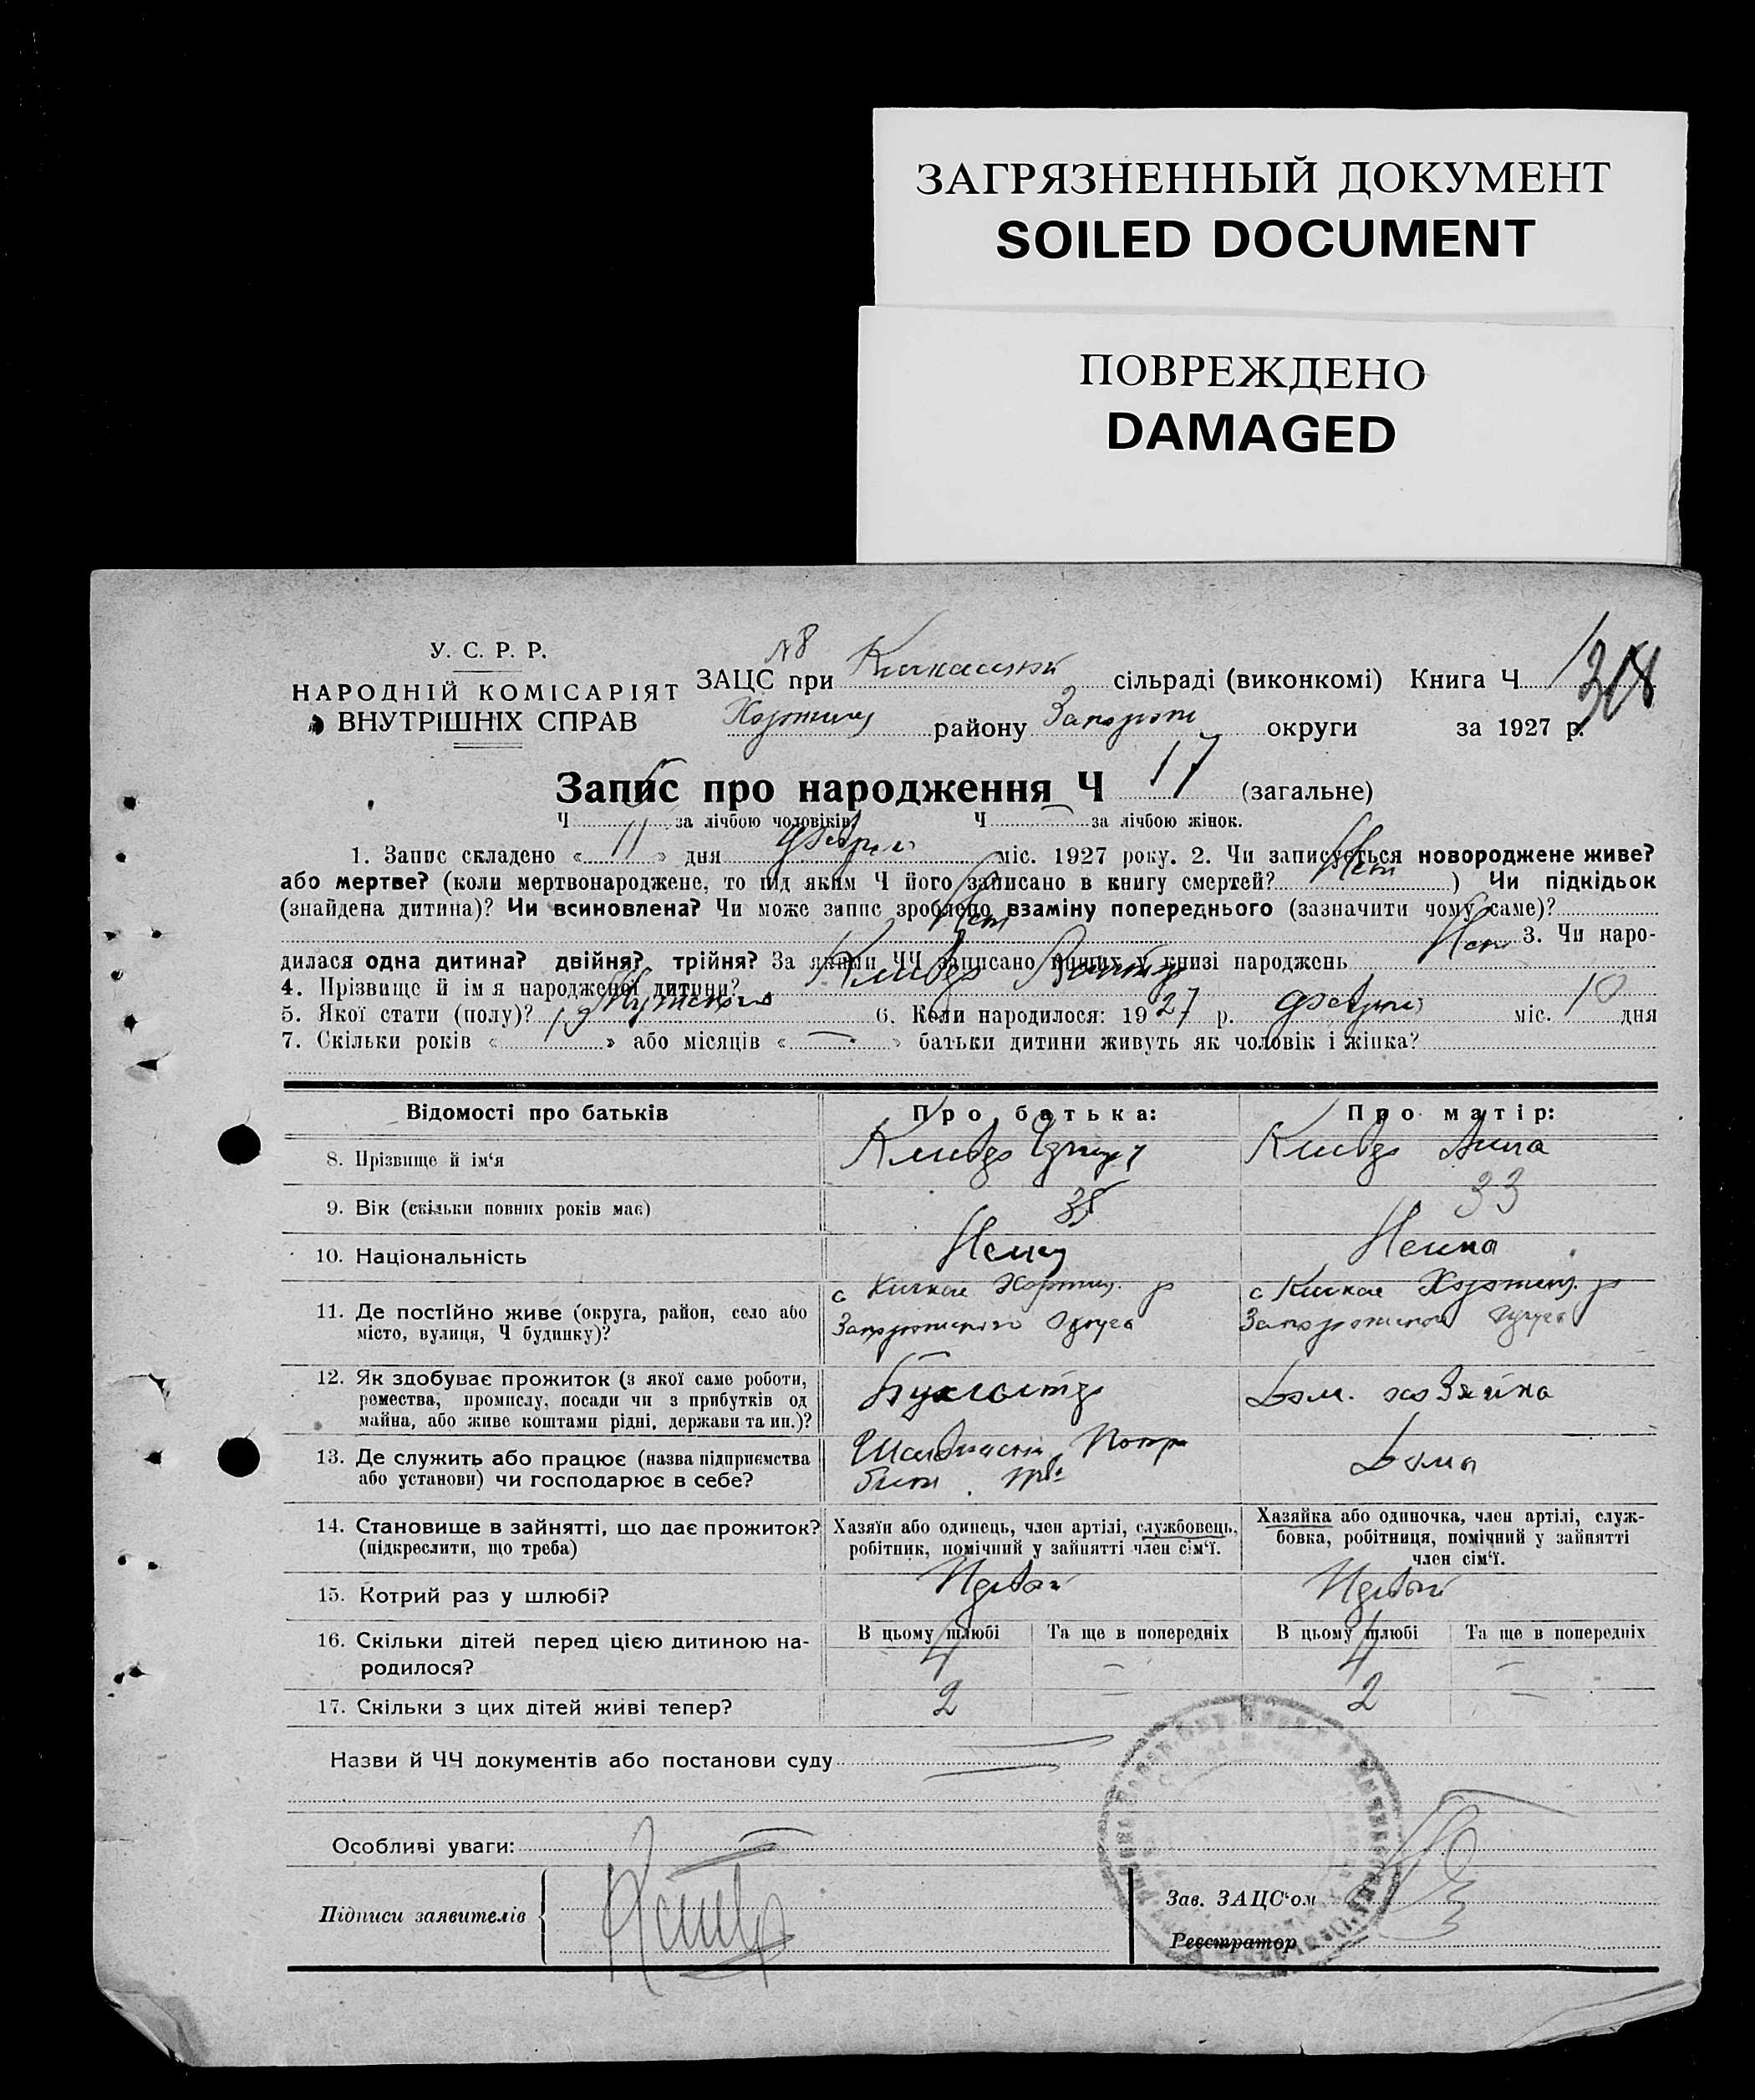 ЗАГРЯЗНЕННЫЙ ДОКУМЕНТ
SOILED DOCUMENT
ПОВРЕЖДЕНО
DAMAGED
У. С. Р. Р.
НАРОДНІЙ КОМІСАРІЯТ
ВНУТРІШНІХ СПРАВ
№8
ЗАЦС при Кичкаський сільраді (виконкомі) Книга Ч
Хортиц району Запорож округи за 1927 р.
Запис про народження Ч 17 (загальне)
Ч за лічбою чоловіків Ч — за лічбою жінок.
1. Запис складено « 11 » дня міс. 1927 року. 2. Чи записується новороджене живе?
або мертве? (коли мертвонароджене, то під яким Ч його записано в книгу смертей? Нет ) Чи підкідьок
(знайдена дитина)? Чи всиновлена? Чи може запис зроблено взаміну попереднього (зазначити чому саме)?
Нет 3. Чи наро-
дилася одна дитина? двійня? трійня? За якими ЧЧ записано инших у книзі народжень Нет
4. Прізвище й ім'я народженої дитини?
5. Якої стати (полу)? Мужского 6. Коли народилося: 1927 р. міс. 10 дня
7. Скільки років « 13 » або місяців « — » батьки дитини живуть як чоловік і жінка?
Відомості про батьків Про батька: Про матір:
8. Прізвище й ім'я Анна
9. Вік (скільки повних років має) 33
10. Національність Немец Немка
11. Де постійно живе (округа, район, село або
місто, вулиця, Ч будинку)?
с Кичкас Хортиц. р с Кичкас Хортиц. р
Запорожского Округа Запорожской Округа
12. Як здобуває прожиток (з якої саме роботи,
ремества, промислу, посади чи з прибутків од
майна, або живе коштами рідні, держави та ин.)?
Бухгалтер Дом. хозяйка
13. Де служить або працює (назва підприємства
або установи) чи господарює в себе?
Дома
14. Становище в зайнятті, що дає прожиток?
(підкреслити, що треба)
Хазяїн або одинець, член артілі, службовець,
робітник, помічний у зайнятті член сім'ї.
Хазяйка або одиночка, член артілі, служ-
бовка, робітниця, помічний у зайнятті
член сім'ї.
15. Котрий раз у шлюбі? Первый Первый
16. Скільки дітей перед цією дитиною на-
родилося?
В цьому шлюбі Та ще в попередніх В цьому шлюбі Та ще в попередніх
4 — 4 —
17. Скільки з цих дітей живі тепер? 2 — 2 —
Назви й ЧЧ документів або постанови суду
Особливі уваги:
Підписи заявителів
Зав. ЗАЦС'ом
Реєстратор